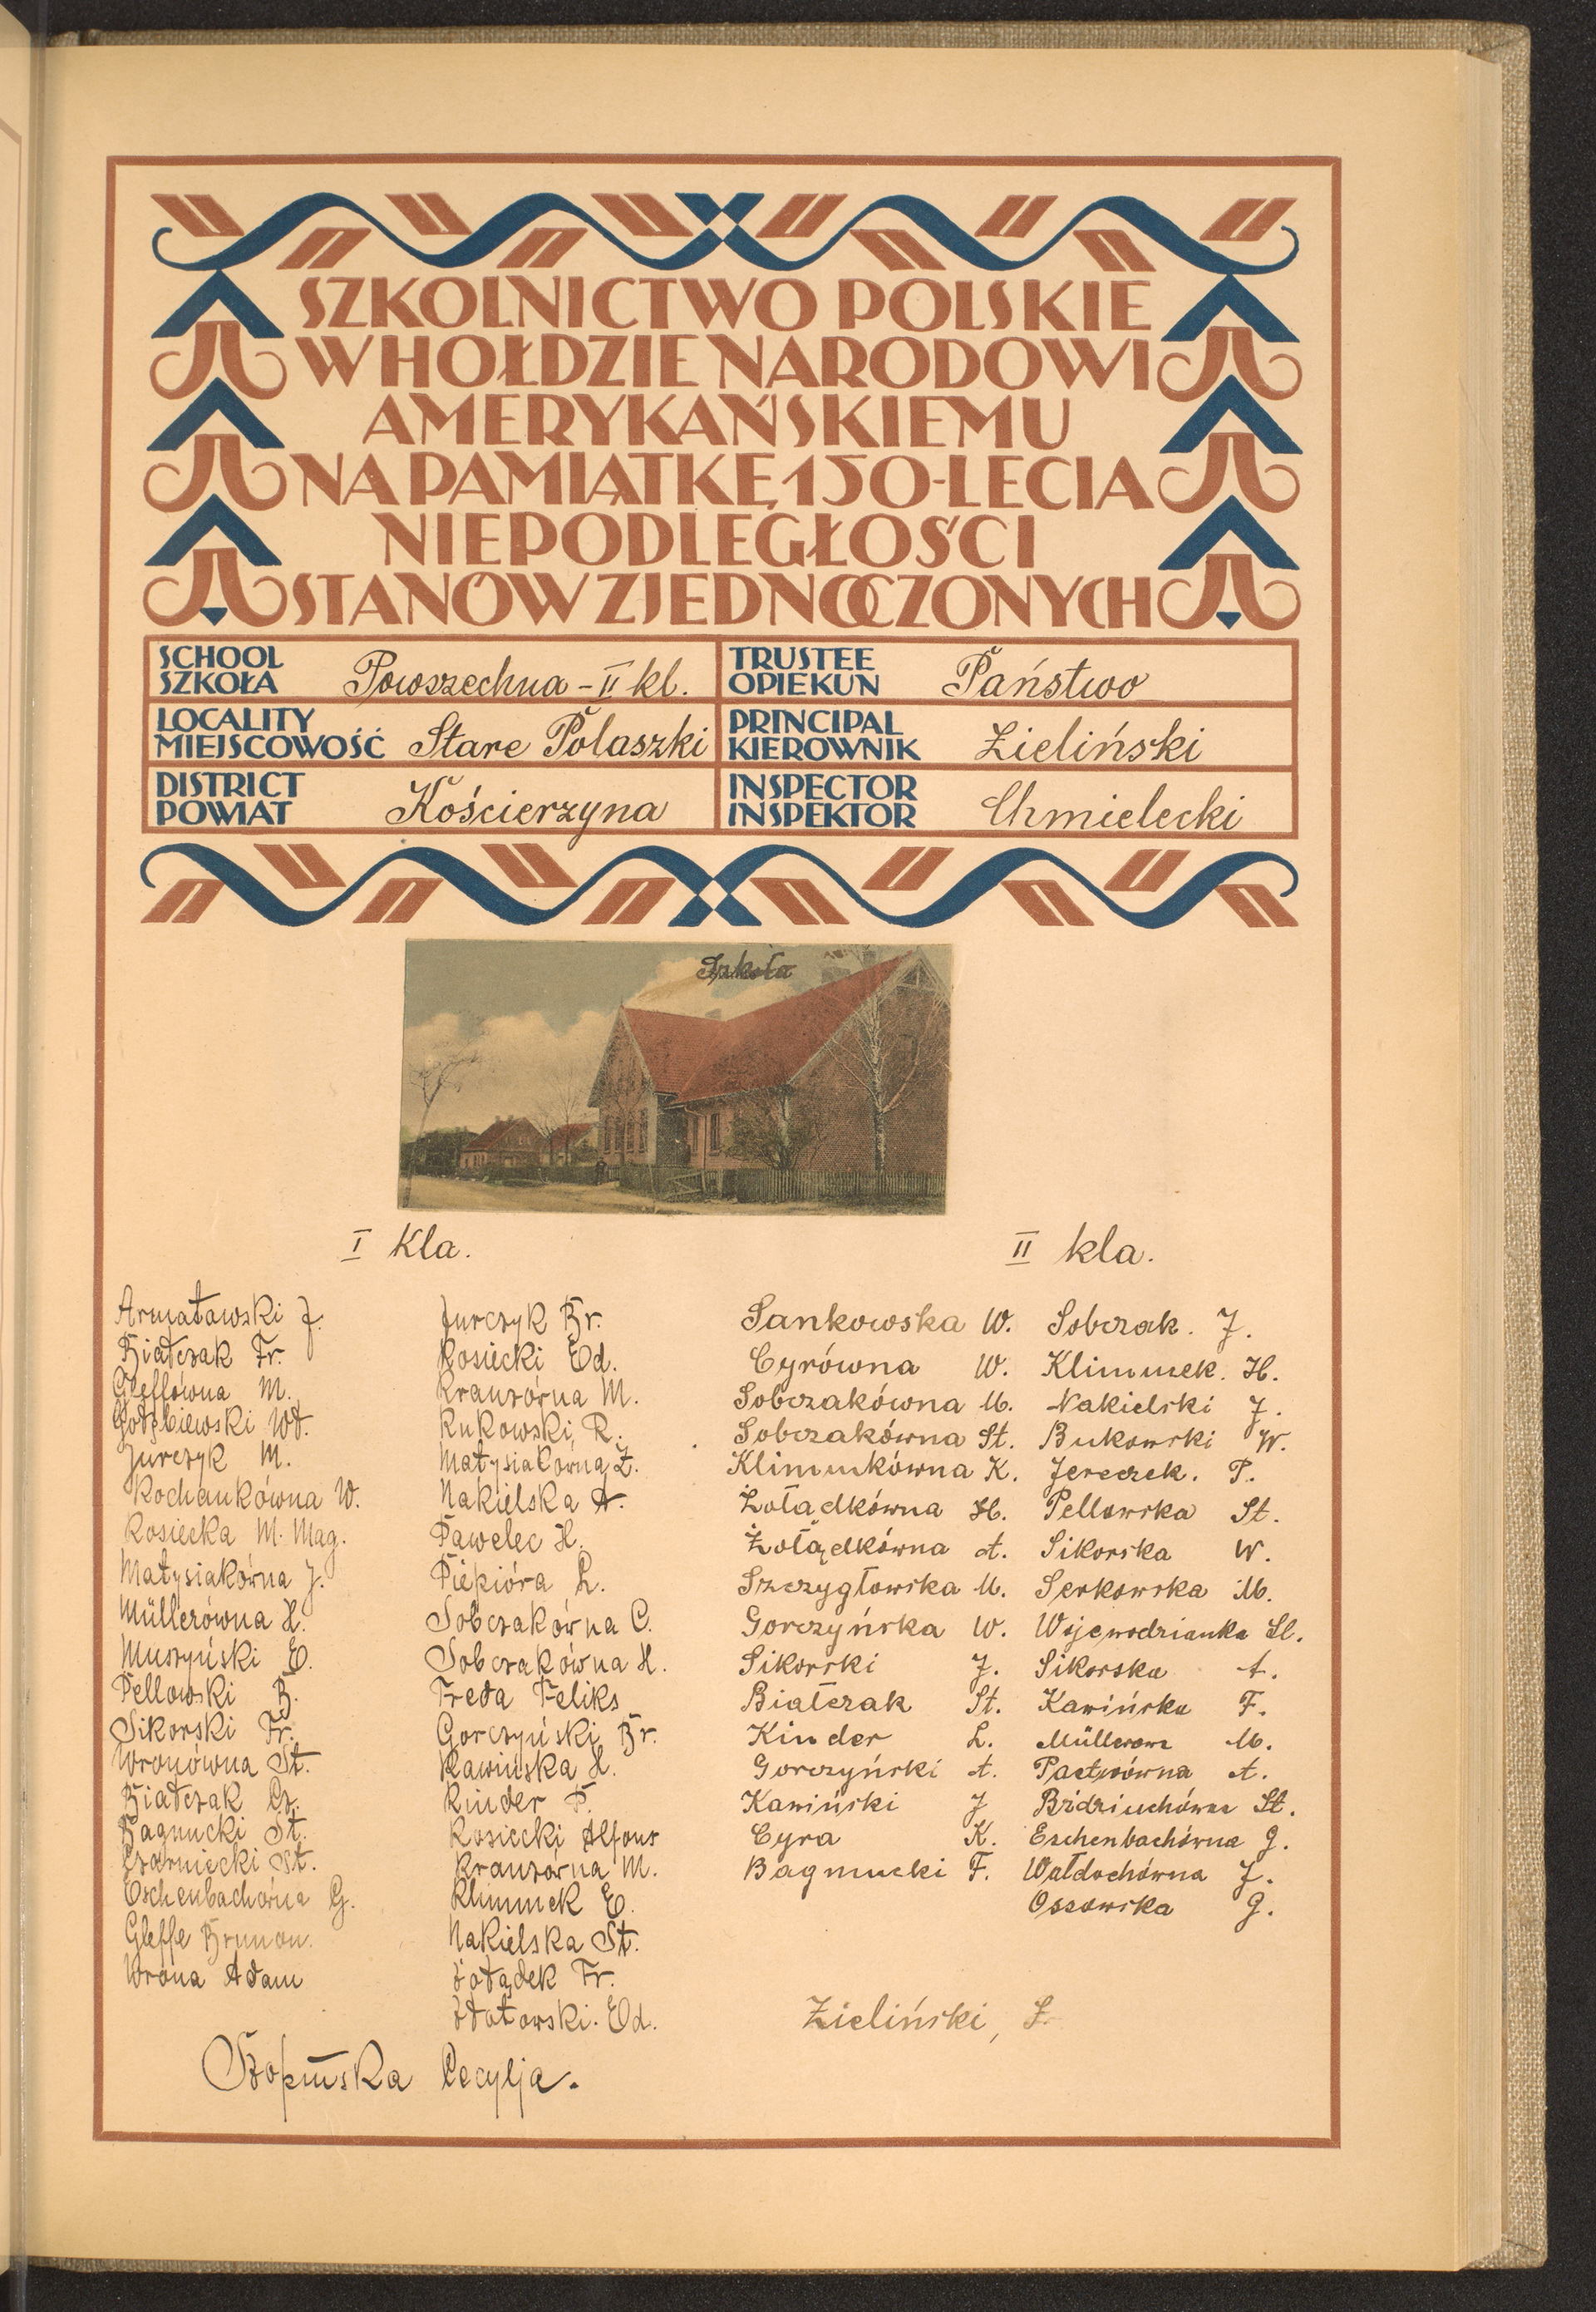 SZKOLNICTWO POLSKIE
W HOŁDZIE NARODOWI
AMERYKAŃSKIEMU
NA PAMIĄTKĘ 150-LECIA
NIEPODLEGŁOŚCI
STANÓW ZJEDNOCZONYCH
SCHOOL
SZKOŁA
Powszechna - II kl.
TRUSTEE
OPIEKUN
Państwo
LOCALITY
MIEJSCOWOŚĆ
Stare Polaszki
PRINCIPAL
KIEROWNIK
Zieliński
DISTRICT
POWIAT
Kościerzyna
INSPECTOR
INSPEKTOR
Chmielecki
Szkoła
I kla.
Armatowski J.
Białczak Fr.
Gleffówna M.
Gołębiewski Wł.
Jurczyk M.
Kochankówna W.
Kosiecka M. Mag.
Matysiakówna J.
Müllerówna H.
Muszyński E.
Pellowski B.
Sikorski Fr.
Wronówna St.
Białczak Cz.
Bagnucki St.
Czarniecki St.
Eschenbachówna G.
Gleffe Brunon.
Wrona Adam
Jurczyk Br.
Kosiecki Ed.
Krauzówna M.
Rukowski, R.
Matysiakówna Z.
Nakielska A.
Pawelec H.
Piepióra L.
Sobczakówna C.
Sobczakówna H.
Treda Feliks
Gorczyński Br.
Kawińska H.
Kinder P.
Kosiecki Alfons
Krauzówna M.
Klimmek E.
Nakielska St.
Żołądek Fr.
Złotowski. Ed.
Cecylja.
II kla.
Sankowska W.
Cyrówna W.
Sobczakówna M.
Sobczakówna St.
Klimmkówna K.
Żołądkówna H.
Żołądkówna A.
Szczygłowska M.
Gorczyńska W.
Sikorski J.
Białczak St.
Kinder L.
Gorczyński A.
Kawiński J
Cyra K.
Bagnucki F.
Sobczak. J.
Klimmek. H.
Nakielski J.
Bukowski W.
Jereczek. P.
Pellowska St.
Sikorska W.
Serkowska M.
Wojewodzianka Sl.
Sikorska A.
Kawińska F.
M.
A.
St.
Eschenbachówna G.
Wałdochówna J.
Ossowska G.
Zieliński, J.